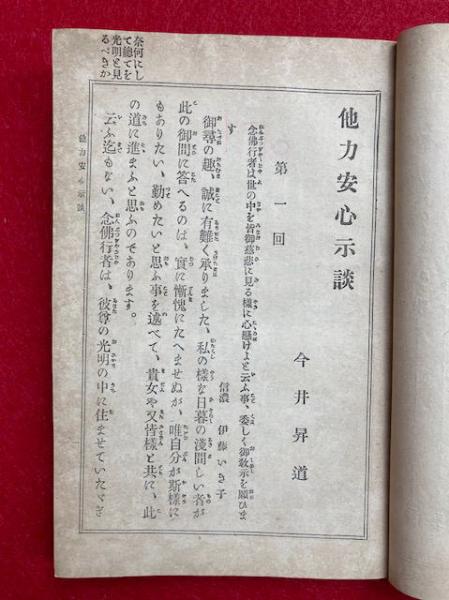 奈何にし
て總てを
光明と見
るべきか
他力安心示談
今井昇道
第一回
念佛行者は世の中を皆御慈悲に見る樣に心懸けよと云ふ事、委しく御敎示を願ひま
す
信濃 伊藤いき子
御尋の趣、誠に有難く承りました、私の樣な日暮の淺間しい者が
此の御問に答へるのは、實に慚愧にたへませぬが、唯自分が斯樣に
もありたい、勤めたいと思ふ事を述べて、貴女や又皆樣と共に、此
の道に進まふと思ふのであります。
云ふ迄もない、念佛行者は、彼尊の光明の中に住ませていたゞき
他力安心示談